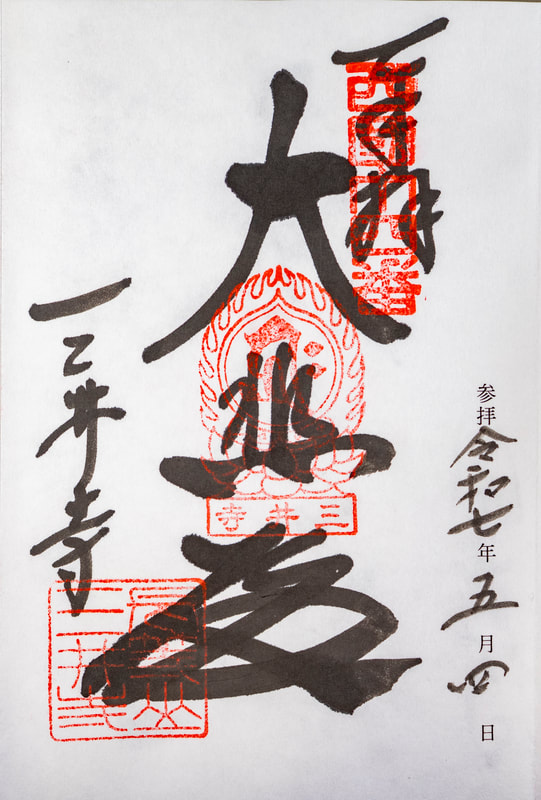 参拝令和七年五月四日
奉拝
西國十四番
大悲殿
三井寺
三井寺